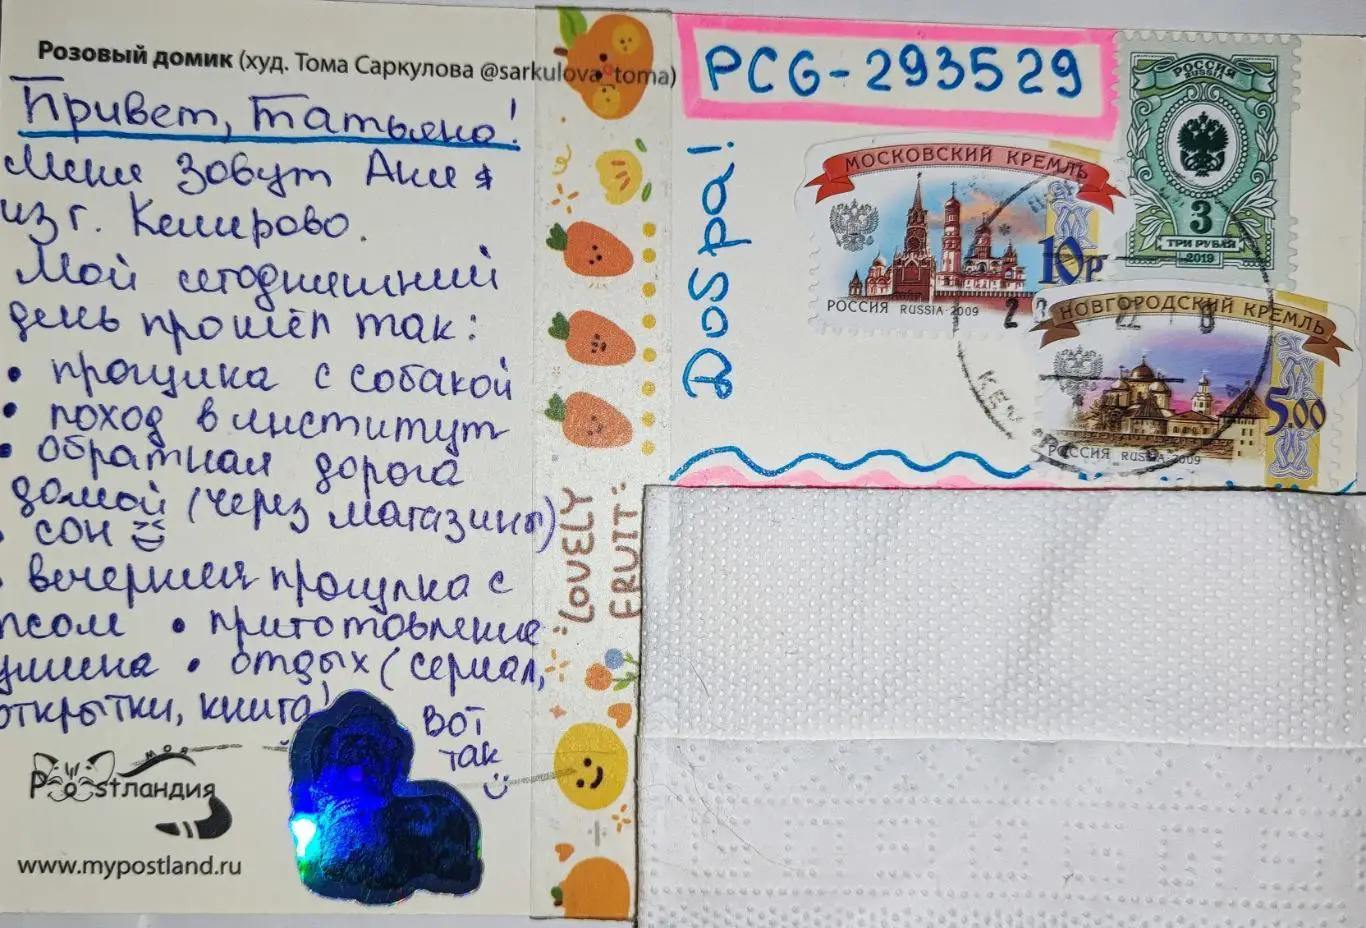 Розовый домик (худ. Тома Саркулова @sarkulova_toma)
Привет, Татьяна!
Меня зовут Аня
из г. Кемерово.
Мой сегодняшний
день прошёл так:
• прогулка с собакой
• поход в институт
• обратная дорога
домой (через магазины)
• сон
• вечерняя прогулка с
псом • приготовление
ужина • отдых (сериал,
открытки, книга)
Вот
так
Postландия
МОЯ
www.mypostland.ru
LOVELY
FRUIT
PCG-293529
Dospa!
МОСКОВСКИЙ КРЕМЛЬ
10р
РОССИЯ RUSSIA 2009
РОССИЯ
RUSSIA
3
ТРИ РУБЛЯ
2019
НОВГОРОДСКИЙ КРЕМЛЬ
5.00
РОССИЯ RUSSIA 2009